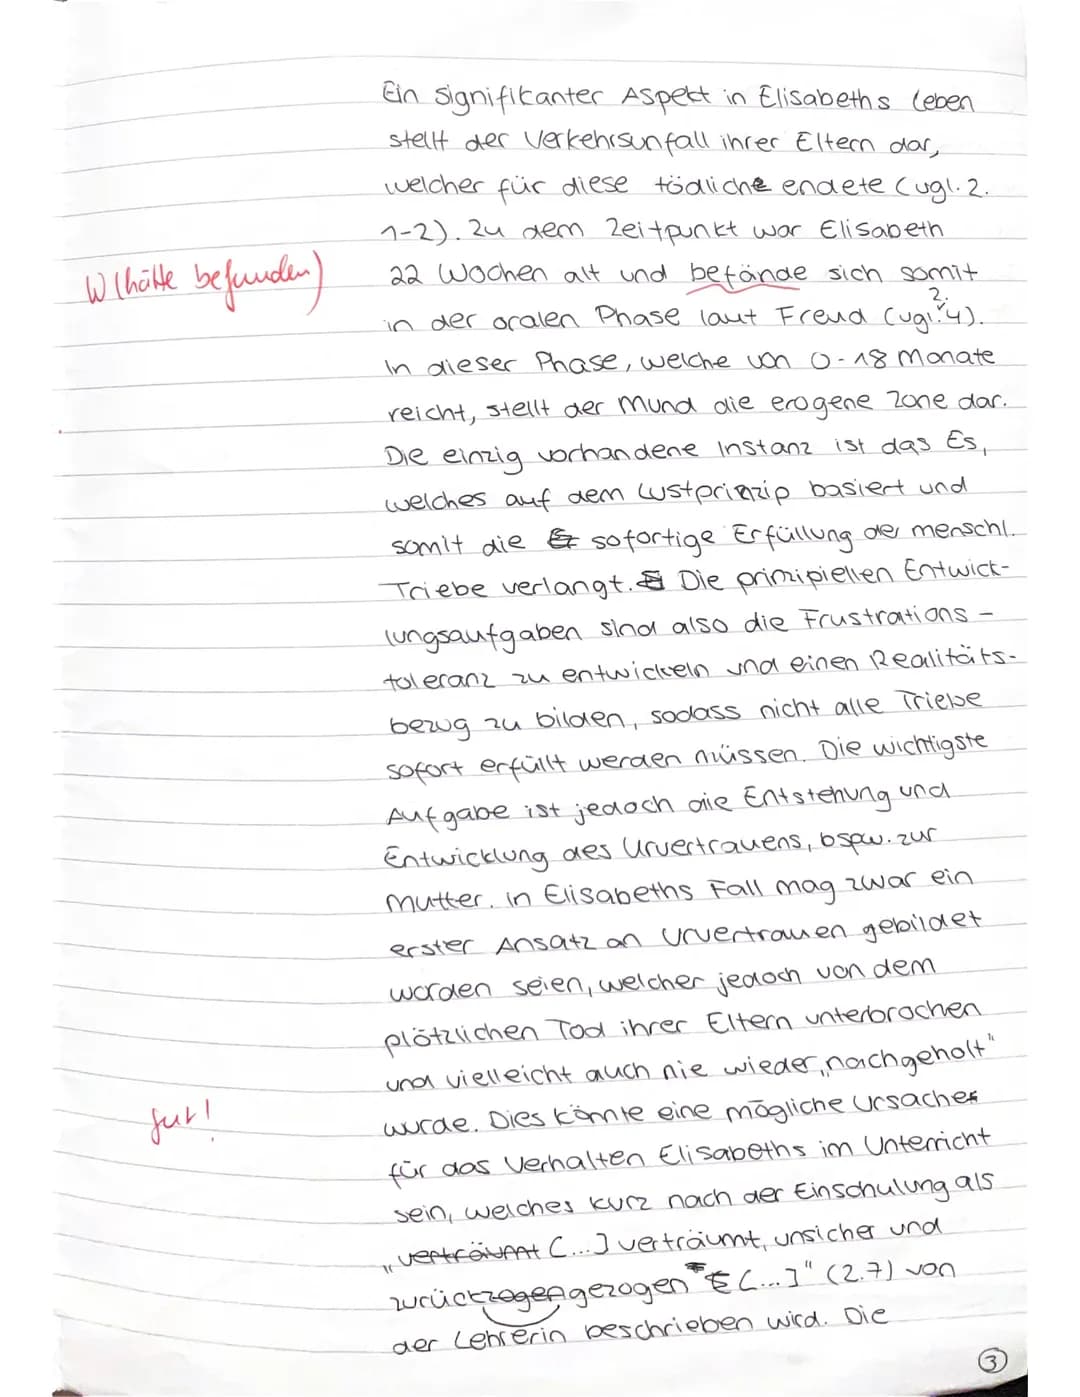 Ein signifikanter Aspekt in Elisabeths Leben
stellt der Verkehrsunfall ihrer Eltern dar,
welcher für diese tödliche endete (vgl. Z.
1-2). Zu dem Zeitpunkt war Elisabeth
W (hätte befunden)
22 Wochen alt und befände sich somit
in der oralen Phase laut Freud (vgl. Z. 4).
In dieser Phase, welche von 0-18 Monate
reicht, stellt der Mund die erogene Zone dar.
Die einzig vorhandene Instanz ist das Es,
welches auf dem Lustprinzip basiert und
somit die sofortige Erfüllung der menschl.
Triebe verlangt. Die prinzipiellen Entwick-
lungsaufgaben sind also die Frustrations-
toleranz zu entwickeln und einen Realitäts-
bezug zu bilden, sodass nicht alle Triebe
sofort erfüllt werden müssen. Die wichtigste
Aufgabe ist jedoch die Entstehung und
Entwicklung des Urvertrauens, bspw. zur
Mutter. In Elisabeths Fall mag zwar ein
erster Ansatz an Urvertrauen gebildet
worden seien, welcher jedoch von dem
plötzlichen Tod ihrer Eltern unterbrochen
und vielleicht auch nie wieder „nachgeholt"
gut!
wurde. Dies könnte eine mögliche Ursache
für das Verhalten Elisabeths im Unterricht
sein, welches kurz nach der Einschulung als
„verträumt [...] verträumt, unsicher und
zurückzogen gezogen [...]" (Z.7) von
der Lehrerin beschrieben wird. Die
3